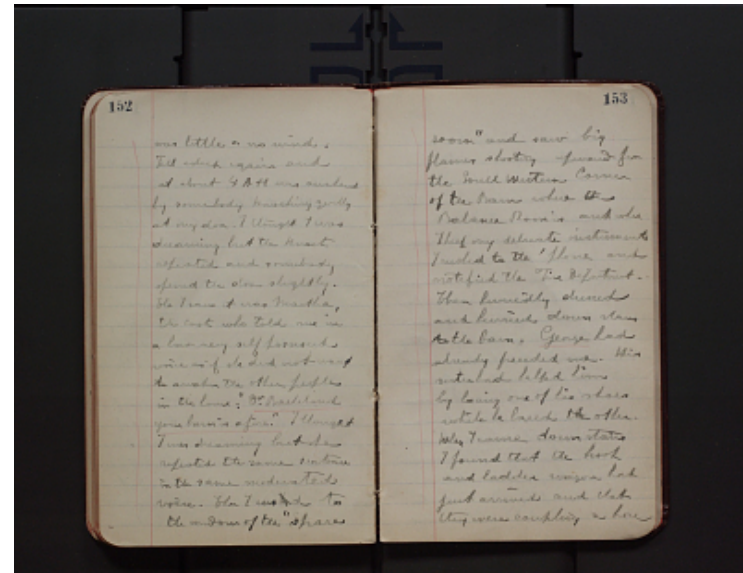 152
was little or no wind.
Fell asleep again and
at about 4 A.M. was awakened
by somebody knocking gently
at my door. I thought I was
dreaming but the knock
repeated and somebody
opened the door slightly.
I saw it was Martha,
the cook who told me in
a low very self possessed
voice as if she did not want
to awake the other people
in the house: "Dr. Baekeland
your barn is afire". I thought
I was dreaming but she
repeated the same sentence
in the same moderated
voice. I rushed to
the window of the "spare
153
room" and saw big
flames shooting upward from
the South Western Corner
of the Barn where the
Balance Room is and where
I keep my delicate instruments
I rushed to the 'phone and
notified the Fire Department.
Then hurriedly dressed
and hurried down stairs
to the barn. George had
already preceded me. His
wife had helped him
by lacing one of his shoes
while he laced the other.
When I came down stairs
I found that the hook
and ladder wagon had
just arrived and that
they were coupling a hose